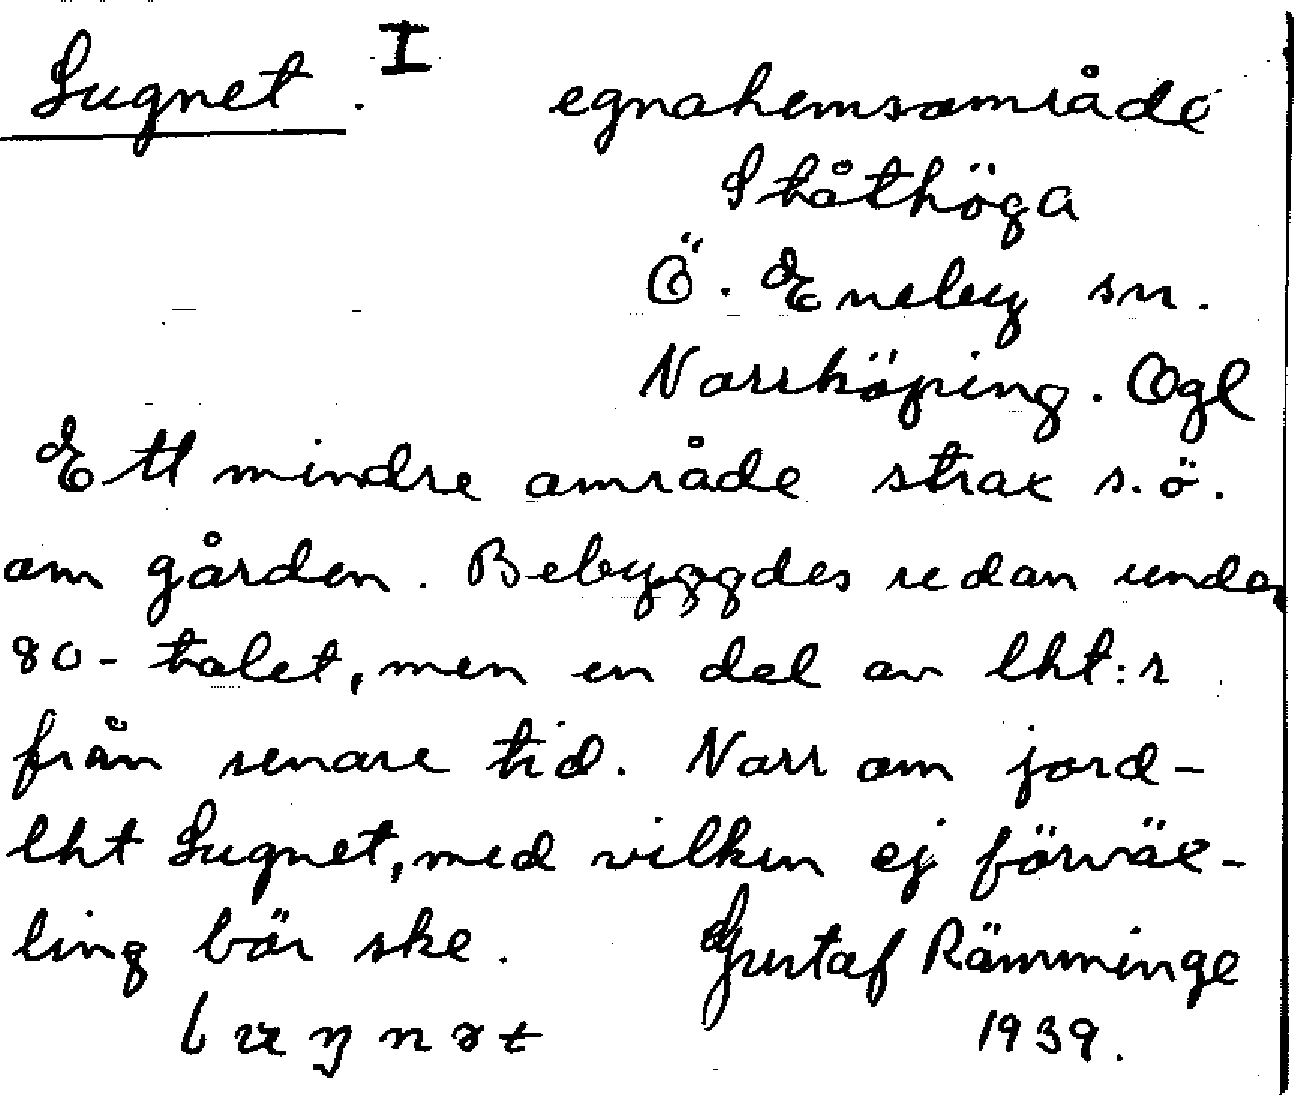 Lugnet. I egnahemsområde
Ståthöga
Ö. Eneby sn.
Norrköping. Ogl
Ett mindre område strax s.ö.
om gården. Bebyggdes redan under
80-talet, men en del av lht:r
från senare tid. Norr om jord-
lht Lugnet, med vilken ej förväx-
ling bör ske. Gustaf Rämminge
lʉŋnət 1939.